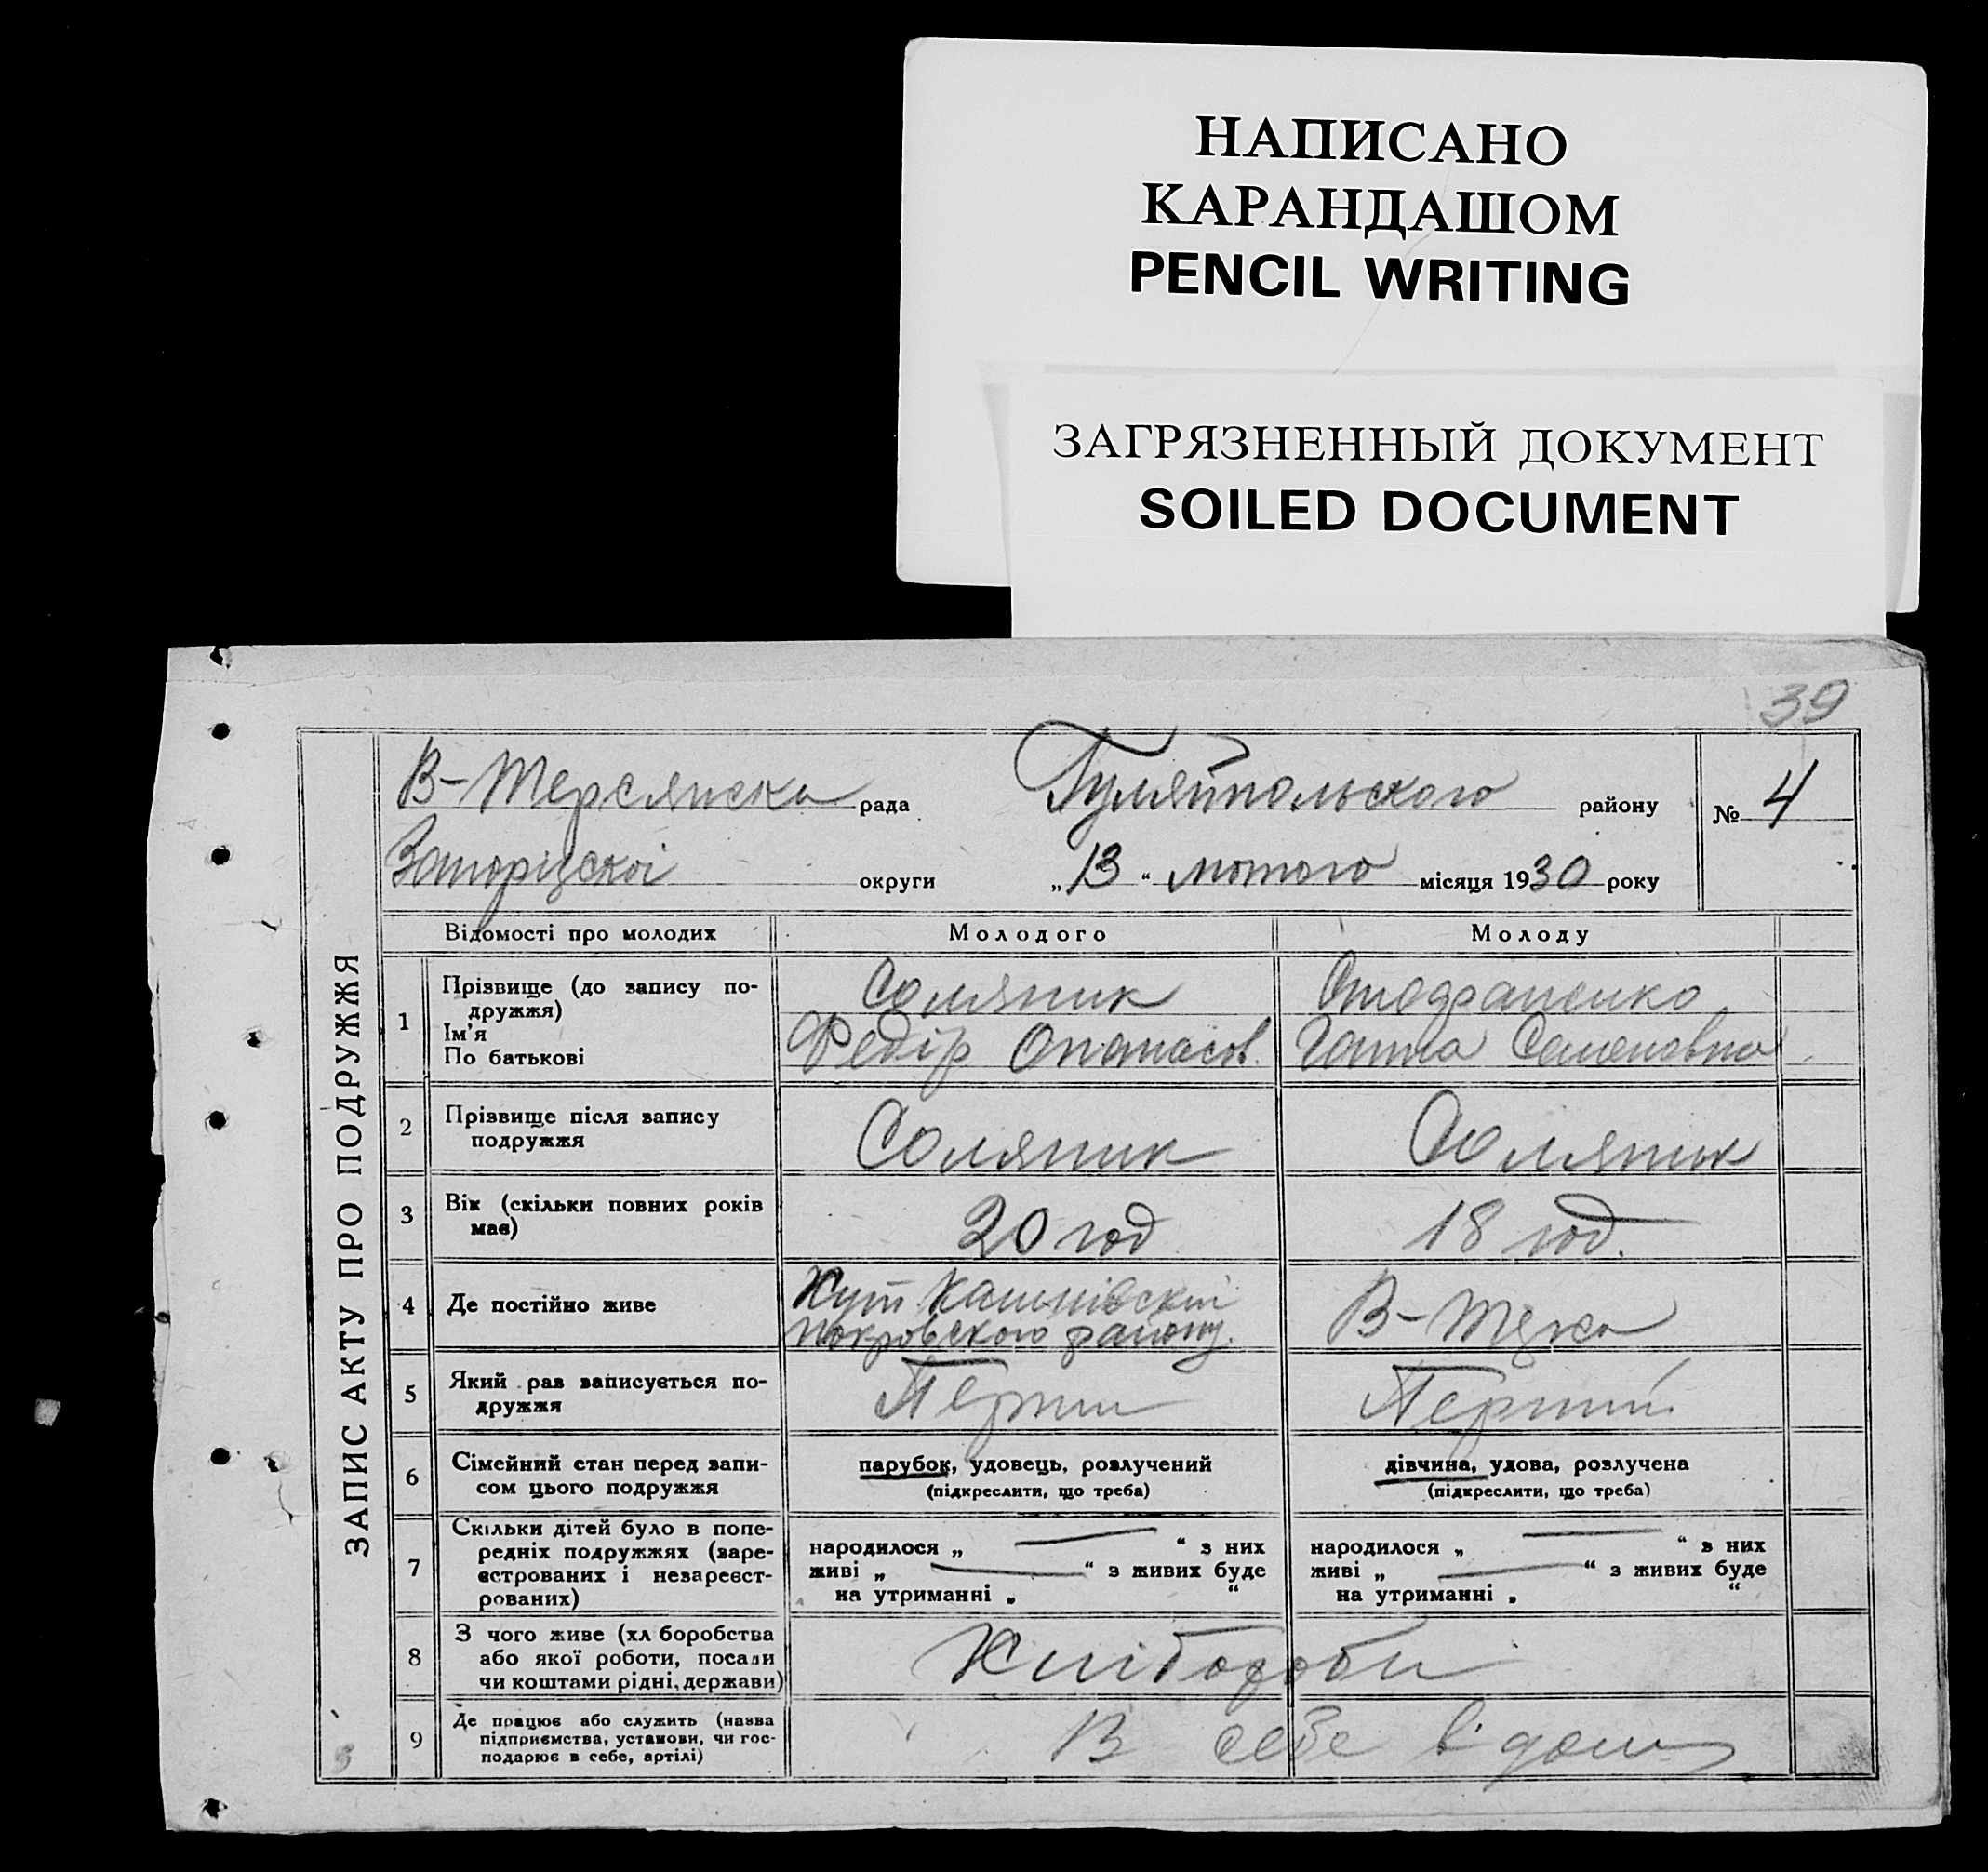 НАПИСАНО
КАРАНДАШОМ
PENCIL WRITING
ЗАГРЯЗНЕННЫЙ ДОКУМЕНТ
SOILED DOCUMENT
39
ЗАПИС АКТУ ПРО ПОДРУЖЖЯ
В-Терсянска рада Гуляйпольского району № 4
Запоріцскої округи „13“ лютого місяця 1930 року
Відомості про молодих Молодого Молоду
1 Прізвище (до запису подружжя) Соляник
Ім'я
По батькові Федір Опанасов. Ганна Семеновна
2 Прізвище після запису
подружжя Соляник Соляник
3 Вік (скільки повних років
має) 20 год 18 год.
4 Де постійно живе Хут
Покровского району. В-Терса
5 Який раз записується по-
дружжя Перши Перший
6 Сімейний стан перед запи-
сом цього подружжя парубок, удовець, розлучений дівчина, удова, розлучена
(підкреслити, що треба) (підкреслити, що треба)
7 Скільки дітей було в попе-
редніх подружжях (заре-
єстрованих і незареєст-
рованих) народилося „ — “ з них народилося „ — “ з них
живі „ — “ з живих буде живі „ — “ з живих буде
на утриманні „ “ на утриманні „ “
8 З чого живе (хліборобства
або якої роботи, посади
чи коштами рідні, держави) Хлібороби
9 Де працює або служить (назва
підприємства, установи, чи гос-
подарює в себе, артілі) В себе в дома